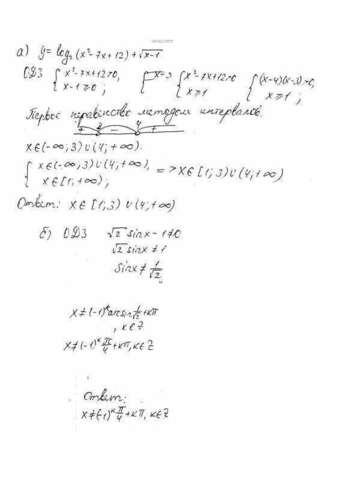 а) y=log₃(x²-7x+12)+√x-1
ОДЗ { x²-7x+12>0, x-1≥0; { x²-7x+12>0 x≥1 { (x-4)(x-3)>0, x≥1 ;
Первое неравенство методом интервалов.
+ 3 - 4 +
x∈(-∞;3)∪(4;+∞).
{ x∈(-∞;3)∪(4;+∞), x∈[1;+∞); => x∈[1;3)∪(4;+∞)
Ответ: x∈[1;3)∪(4;+∞)
б) ОДЗ √2 sinx-1≠0
√2 sinx≠1
sinx≠1/√2
x≠(-1)ᵏarcsin 1/√2+kπ
, k∈Z
x≠(-1)ᵏ π/4+kπ, k∈Z
Ответ:
x≠(-1)ᵏ π/4+kπ, k∈Z